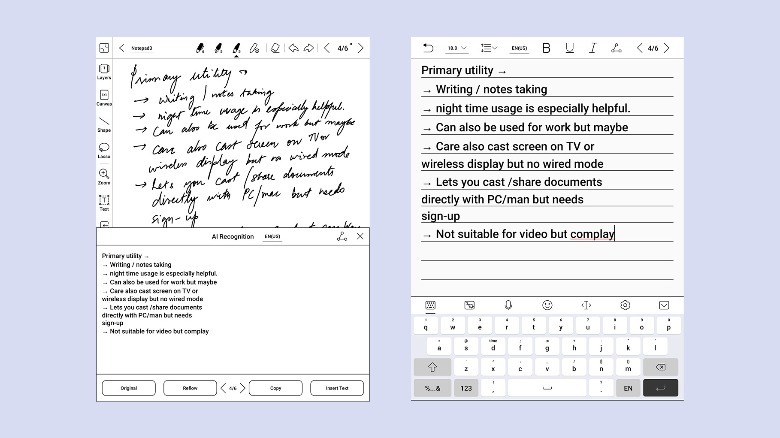 Notepad3
4/6
Layers
Canvas
Shape
Lasso
Zoom
Text
Primary utility →
→ writing / notes taking
→ night time usage is especially helpful.
→ Can also be used for work but maybe
→ can also cast screen on TV or
wireless display but no wired mode
→ Lets you cast /share documents
directly with PC/mac but needs
sign-up
AI Recognition EN(US)
Primary utility →
→ Writing / notes taking
→ night time usage is especially helpful.
→ Can also be used for work but maybe
→ Care also cast screen on TV or
wireless display but no wired mode
→ Lets you cast /share documents
directly with PC/man but needs
sign-up
→ Not suitable for video but complay
Original Reflow 4/6 Copy Insert Text
18.0 EN(US) B U I 4/6
Primary utility →
→ Writing / notes taking
→ night time usage is especially helpful.
→ Can also be used for work but maybe
→ Care also cast screen on TV or
wireless display but no wired mode
→ Lets you cast /share documents
directly with PC/man but needs
sign-up
→ Not suitable for video but complay
1 2 3 4 5 6 7 8 9 0
q w e r t y u i o p
a s d f g h j k l
z x c v b n m
%...& 123 , . EN